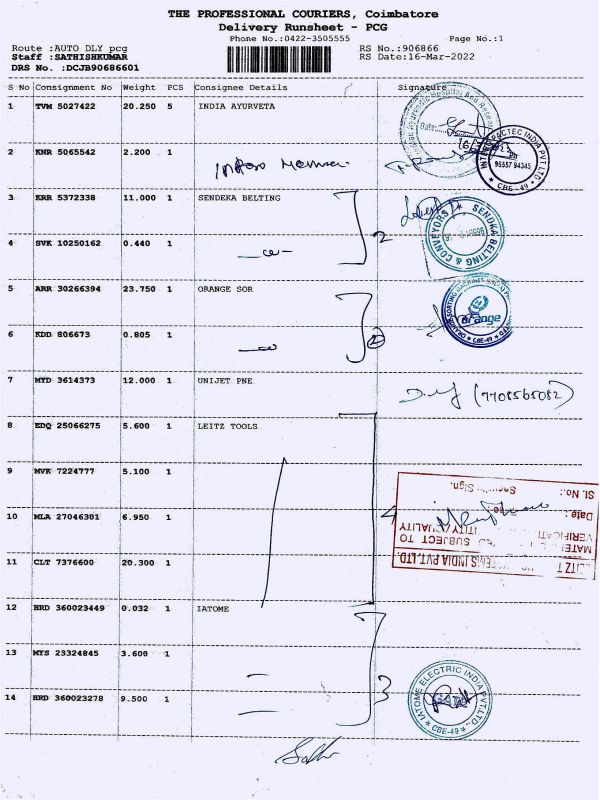 THE PROFESSIONAL COURIERS, Coimbatore
Delivery Runsheet - PCG
Phone No.:0422-3505555 Page No.:1
Route :AUTO DLY pcg RS No.:906866
Staff :SATHISHKUMAR RS Date:16-Mar-2022
DRS No. :DCJB90686601
S No Consignment No Weight PCS Consignee Details Signature
1 TVM 5027422 20.250 5 INDIA AYURVETA
2 KNR 5065542 2.200 1
3 ERR 5372338 11.000 1 SENDEKA BELTING
2
4 SVK 10250162 0.440 1
SENDKA BELTING & CONVEYORS
5 ARR 30266394 23.750 1 ORANGE SOR
orange
CBE-49
6 KDD 806673 0.805 1
2
7 MYD 3614373 12.000 1 UNIJET PNE
(7708565082)
8 EDQ 25066275 5.600 1 LEITZ TOOLS
9 MVK 7224777 5.100 1
10 MLA 27046301 6.950 1
4
11 CLT 7376600 20.300 1
Sl. No.:
Date:
SUBJECT TO
INDIA PVT.LTD
12 HRD 360023449 0.032 1 IATOME
13 MYS 23324845 3.600 1
3
14 HRD 360023278 9.500 1
IATOME ELECTRIC INDIA PVT.LTD.,
CBE-49
96557 94345
CBE-49